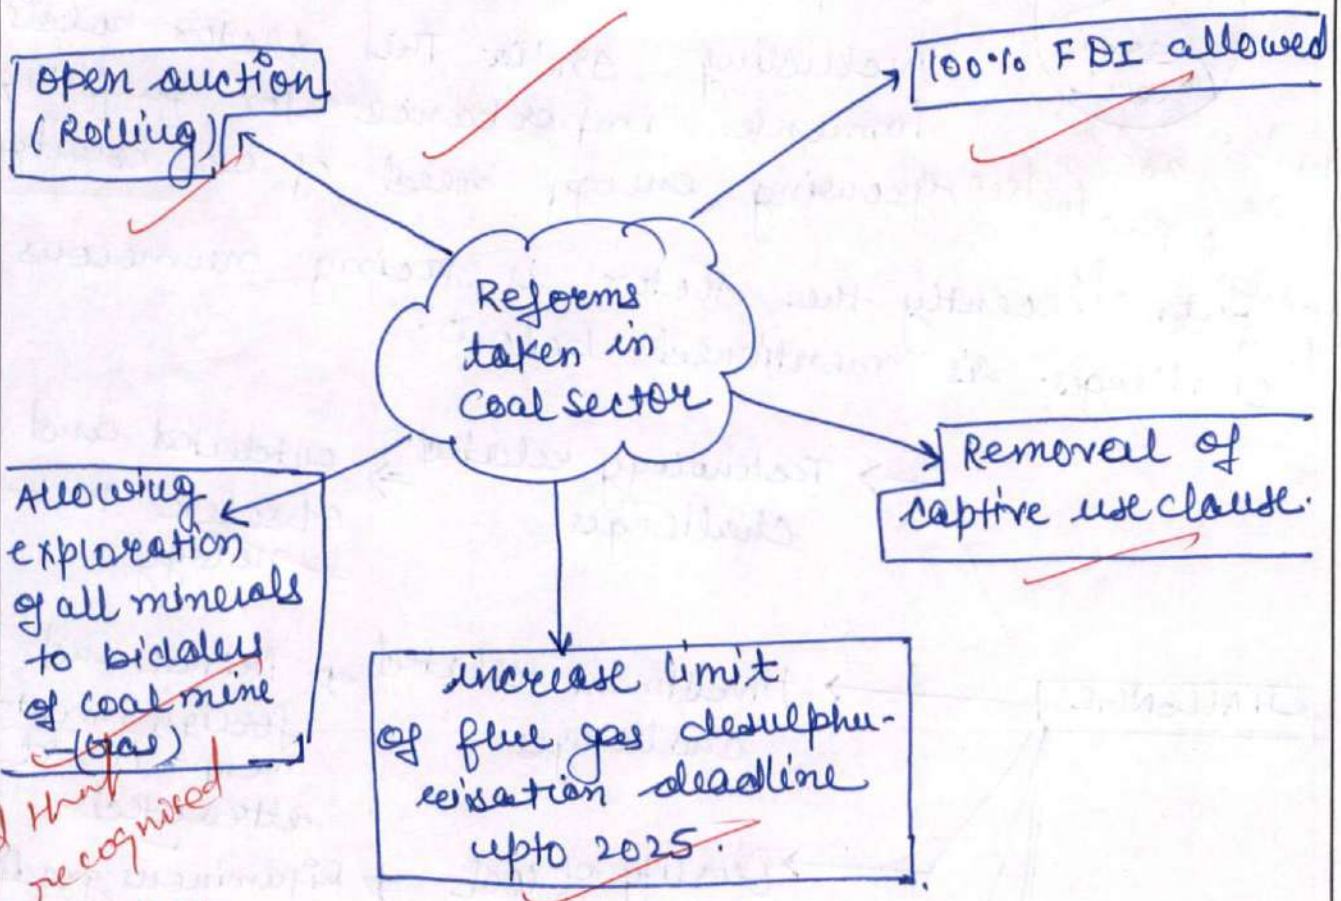 open auction
(Rolling)
100% FDI allowed
Reforms
taken in
Coal sector
Removal of
captive use clause.
Allowing
exploration
of all minerals
to bidders
of coal mine
increase limit
of flue gas desulphu-
risation deadline
upto 2025.
recognised